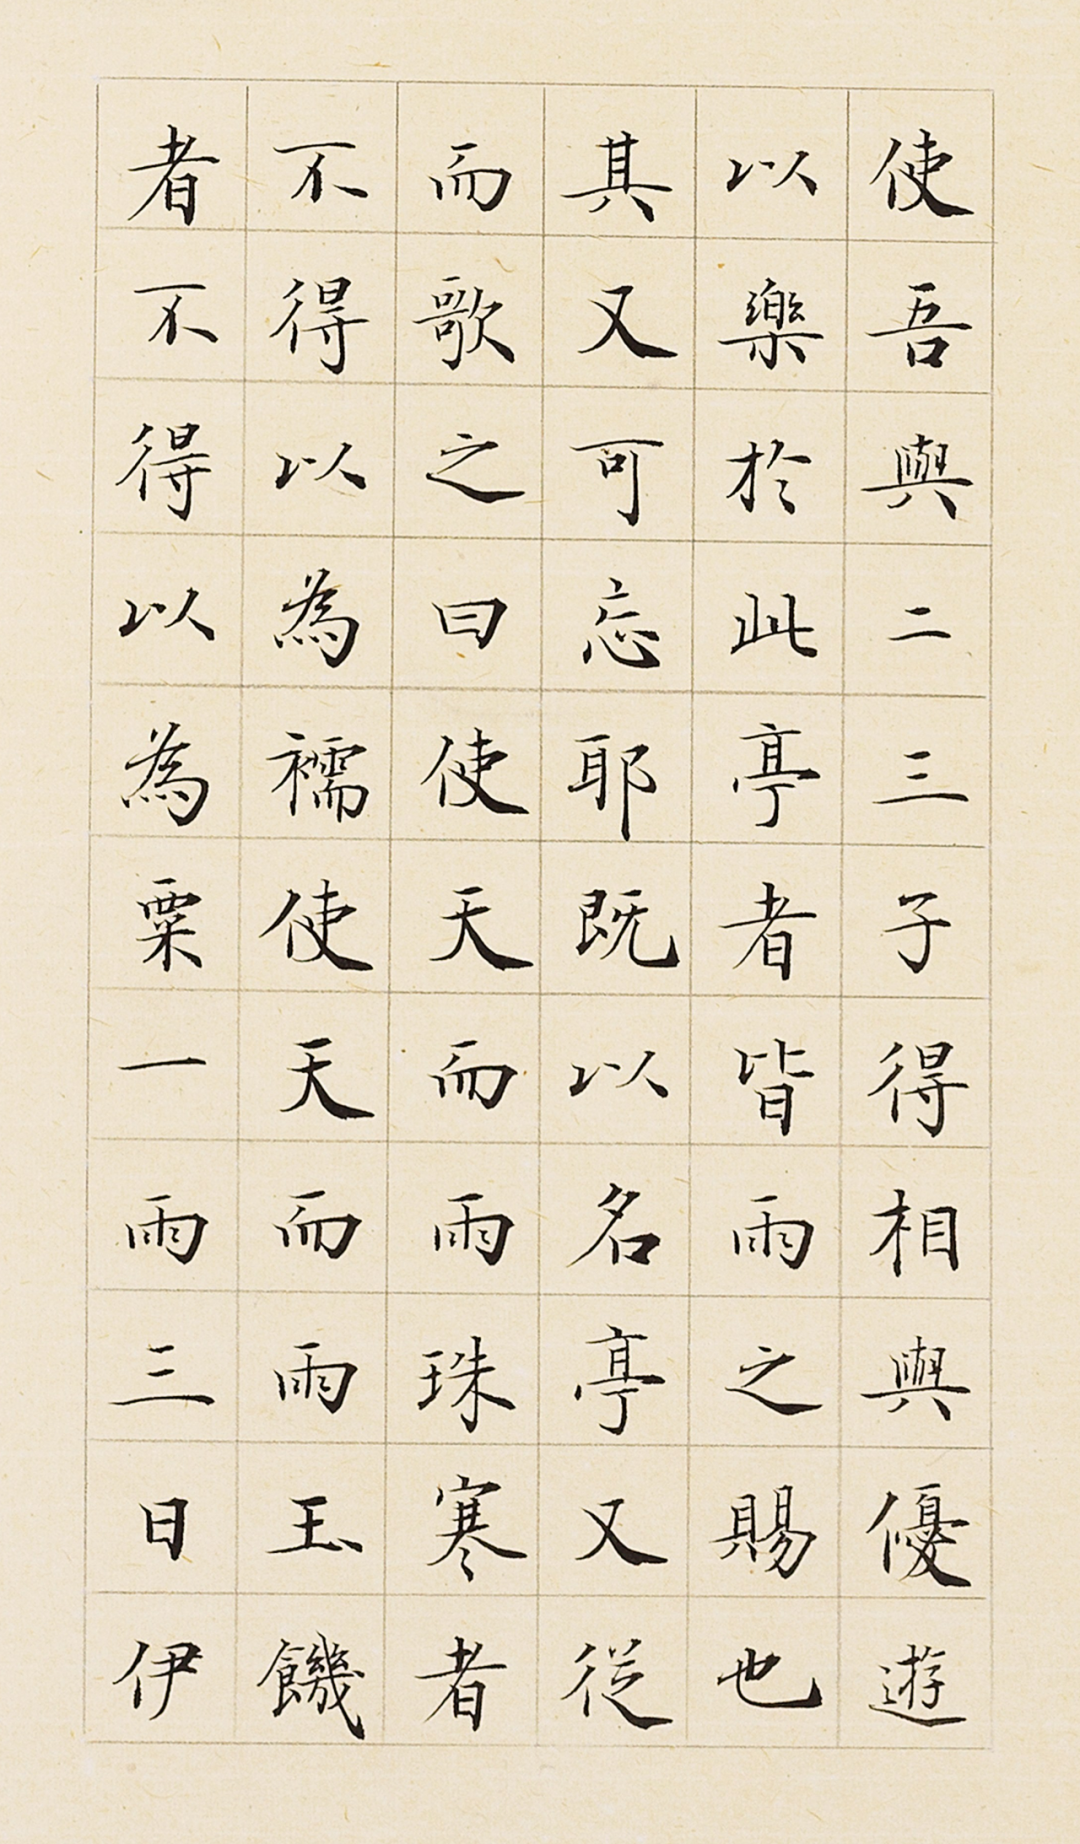 使吾與二三子得相與優遊
以樂於此亭者皆雨之賜也
其又可忘耶既以名亭又從
而歌之曰使天而雨珠寒者
不得以為襦使天而雨玉饑
者不得以為粟一雨三日伊